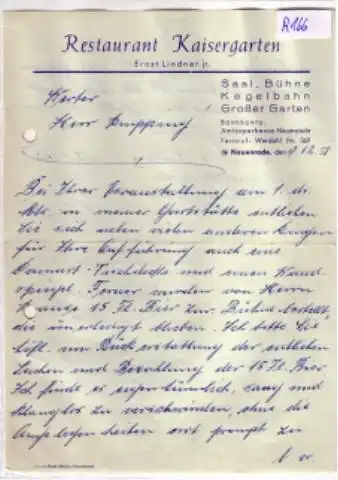 R166
Restaurant Kaisergarten
Ernst Lindner jr.
Saal, Bühne
Kegelbahn
Großer Garten
Bankkonto:
Amtssparkasse Neuenrade
Fernruf: Werdohl Nr. 268
Neuenrade, den 9.12.51
Werter
Herr
Bei Ihrer Veranstaltung am 1. ds.
Mts. in meiner Gaststätte entliehen
Sie sich neben vielen anderen Dingen
für Ihre Aufführung auch eine
Damast-Tischdecke und einen Wand-
spiegel. Ferner wurden von Herrn
15 Fl. Bier zur Bühne bestellt,
die unerledigt blieben. Ich bitte Sie
höfl. um Rückerstattung der entliehen
Sachen und Bezahlung der 15 Fl. Bier
Ich finde es eigentümlich, sang und
klanglos zu verschwinden, ohne die
Angelegenheiten erst prompt zu
b. w.